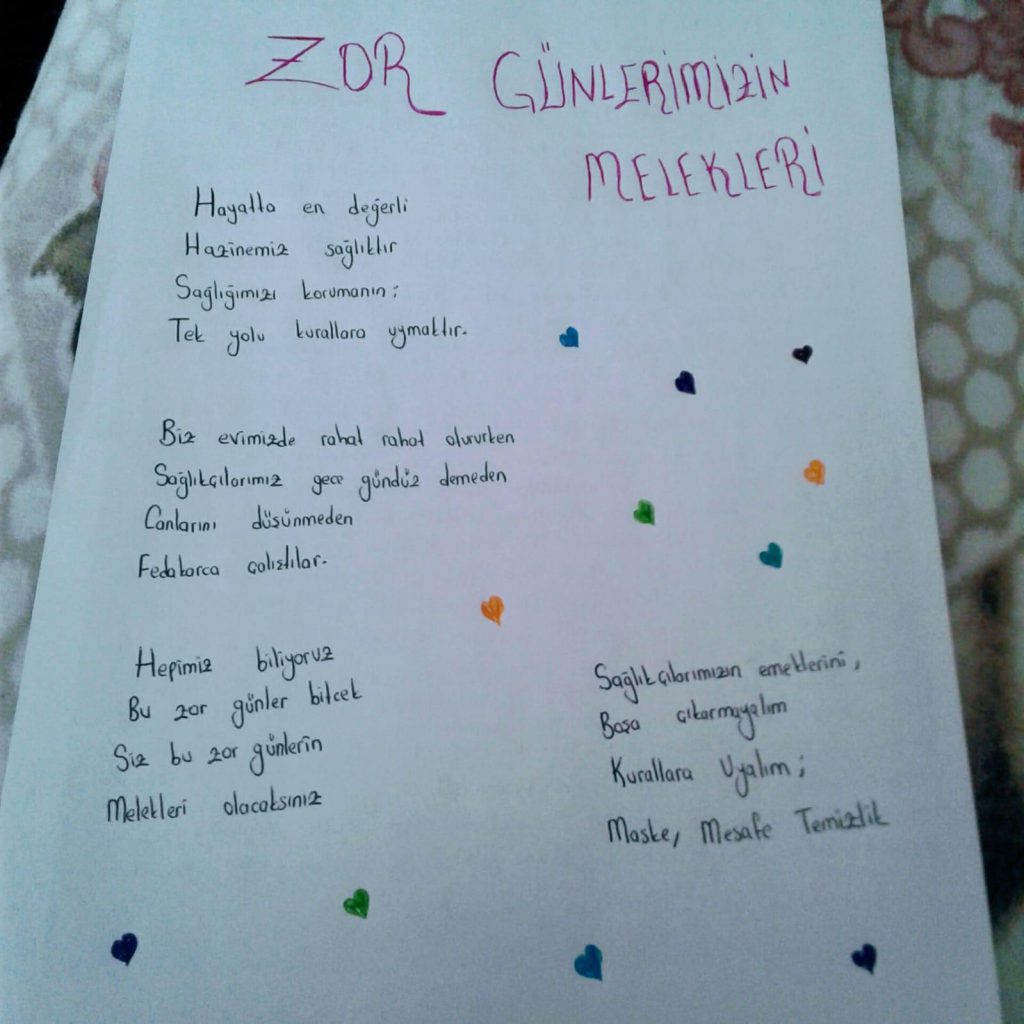 ZOR GÜNLERİMİZİN
MELEKLERİ
Hayatta en değerli
Hazinemiz sağlıktır
Sağlığımızı korumanın;
Tek yolu kurallara uymaktır.
Biz evimizde rahat rahat olururken
Sağlıkçılarımız gece gündüz demeden
Canlarını düsünmeden
Fedakarca çalıstılar.
Hepimiz biliyoruz
Bu zor günler bitcek
Siz bu zor günlerin
Melekleri olacaksınız
Sağlıkçılarımızın emeklerini,
Boşa çıkarmayalım
Kurallara Uyalım;
Maske, Mesafe Temizlik